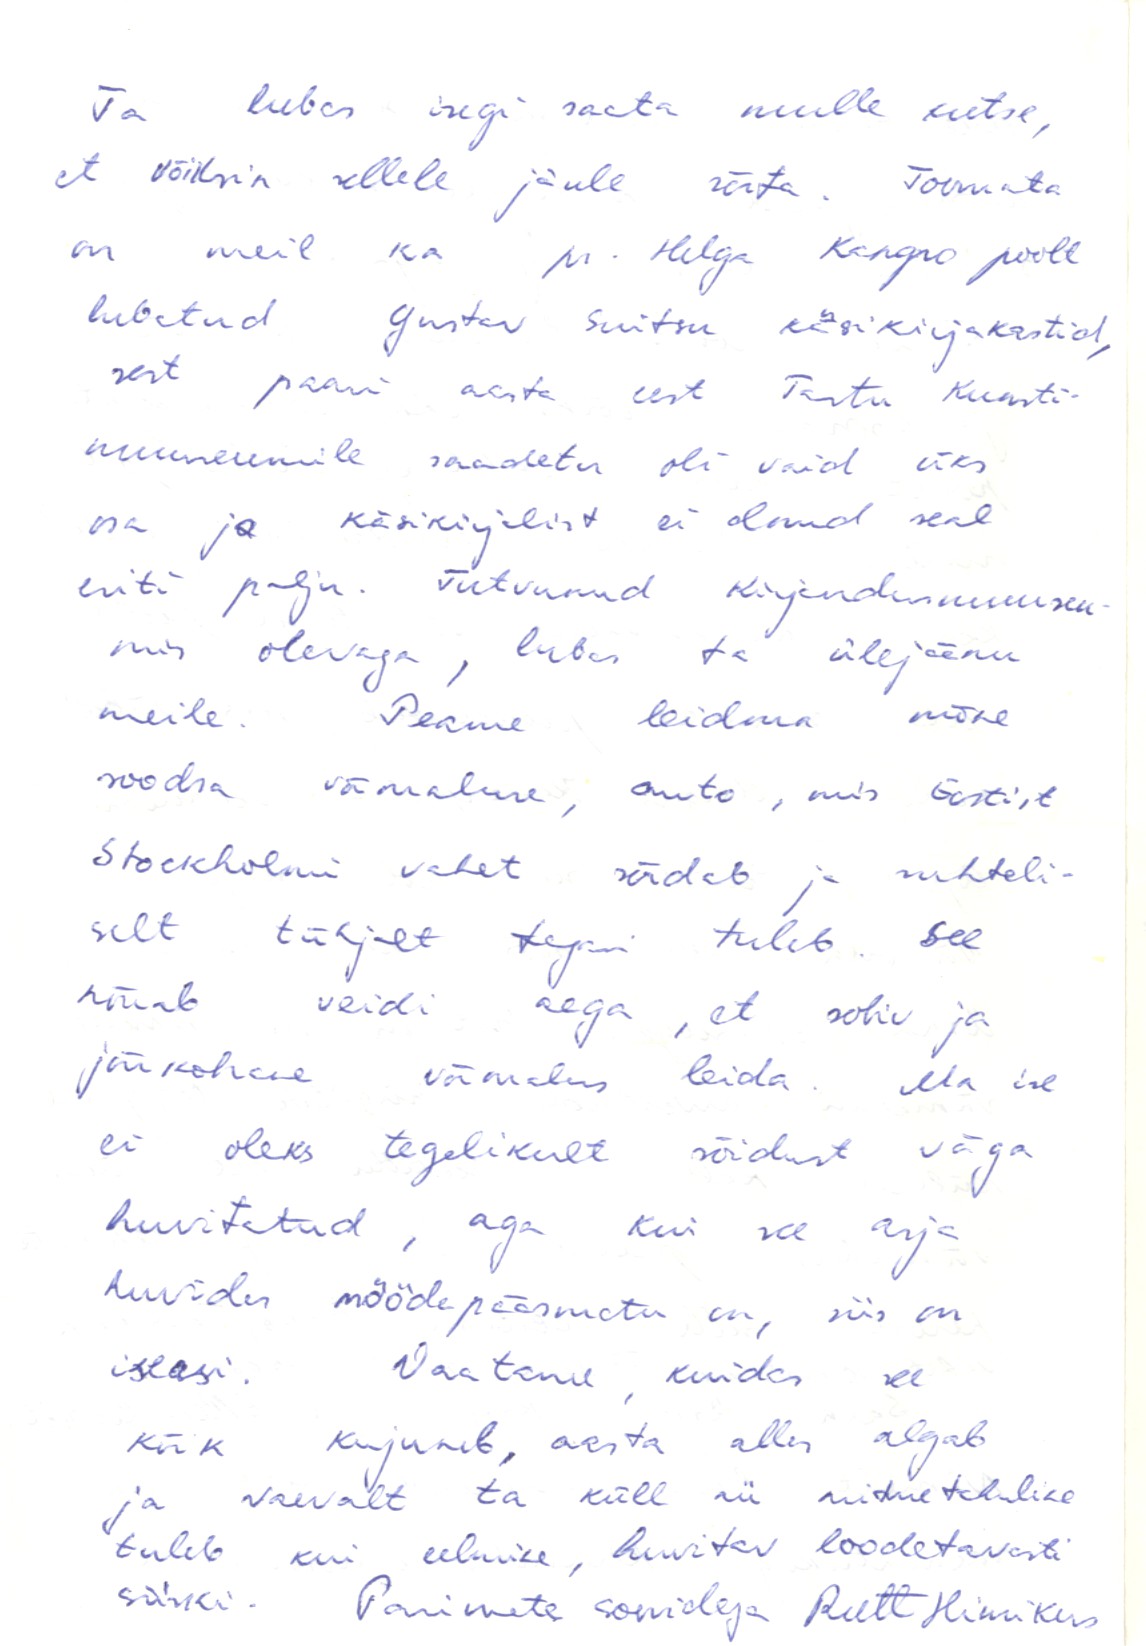 Ta lubas isegi saata mulle kutse,
et võiksin sellele jäule sõita. Toomata
on meil ka pr. Helga Kangro poolt
lubatud Gustav Suitsu käsikirjakastid,
sest paari aasta eest Tartu Kunsti-
muuseumile saadetu oli vaid üks
osa ja käsikirjalist ei olnud seal
eriti palju. Tutvunud Kirjandusmuuseu-
mis olevaga, lubas ta ülejäänu
meile. Peame leidma mõne
soodsa võimaluse, auto, mis Eestist
Stockholmi vahet sõidab ja suhteli-
selt tühjalt tagasi tuleb. See
nõuab veidi aega, et sobiv ja
jõukohane võimalus leida. Ma ise
ei oleks tegelikult sõidust väga
huvitatud, aga kui see asja
huvides möödapääsmatu on, siis on
iseasi. Vaatame, kuidas see
kõik kujuneb, aasta alles algab
ja vaevalt ta küll nii mitmetahulise
tuleb kui eelmise, huvitav loodetavasti
siiski. Parimate soovidega Rutt Hinrikus